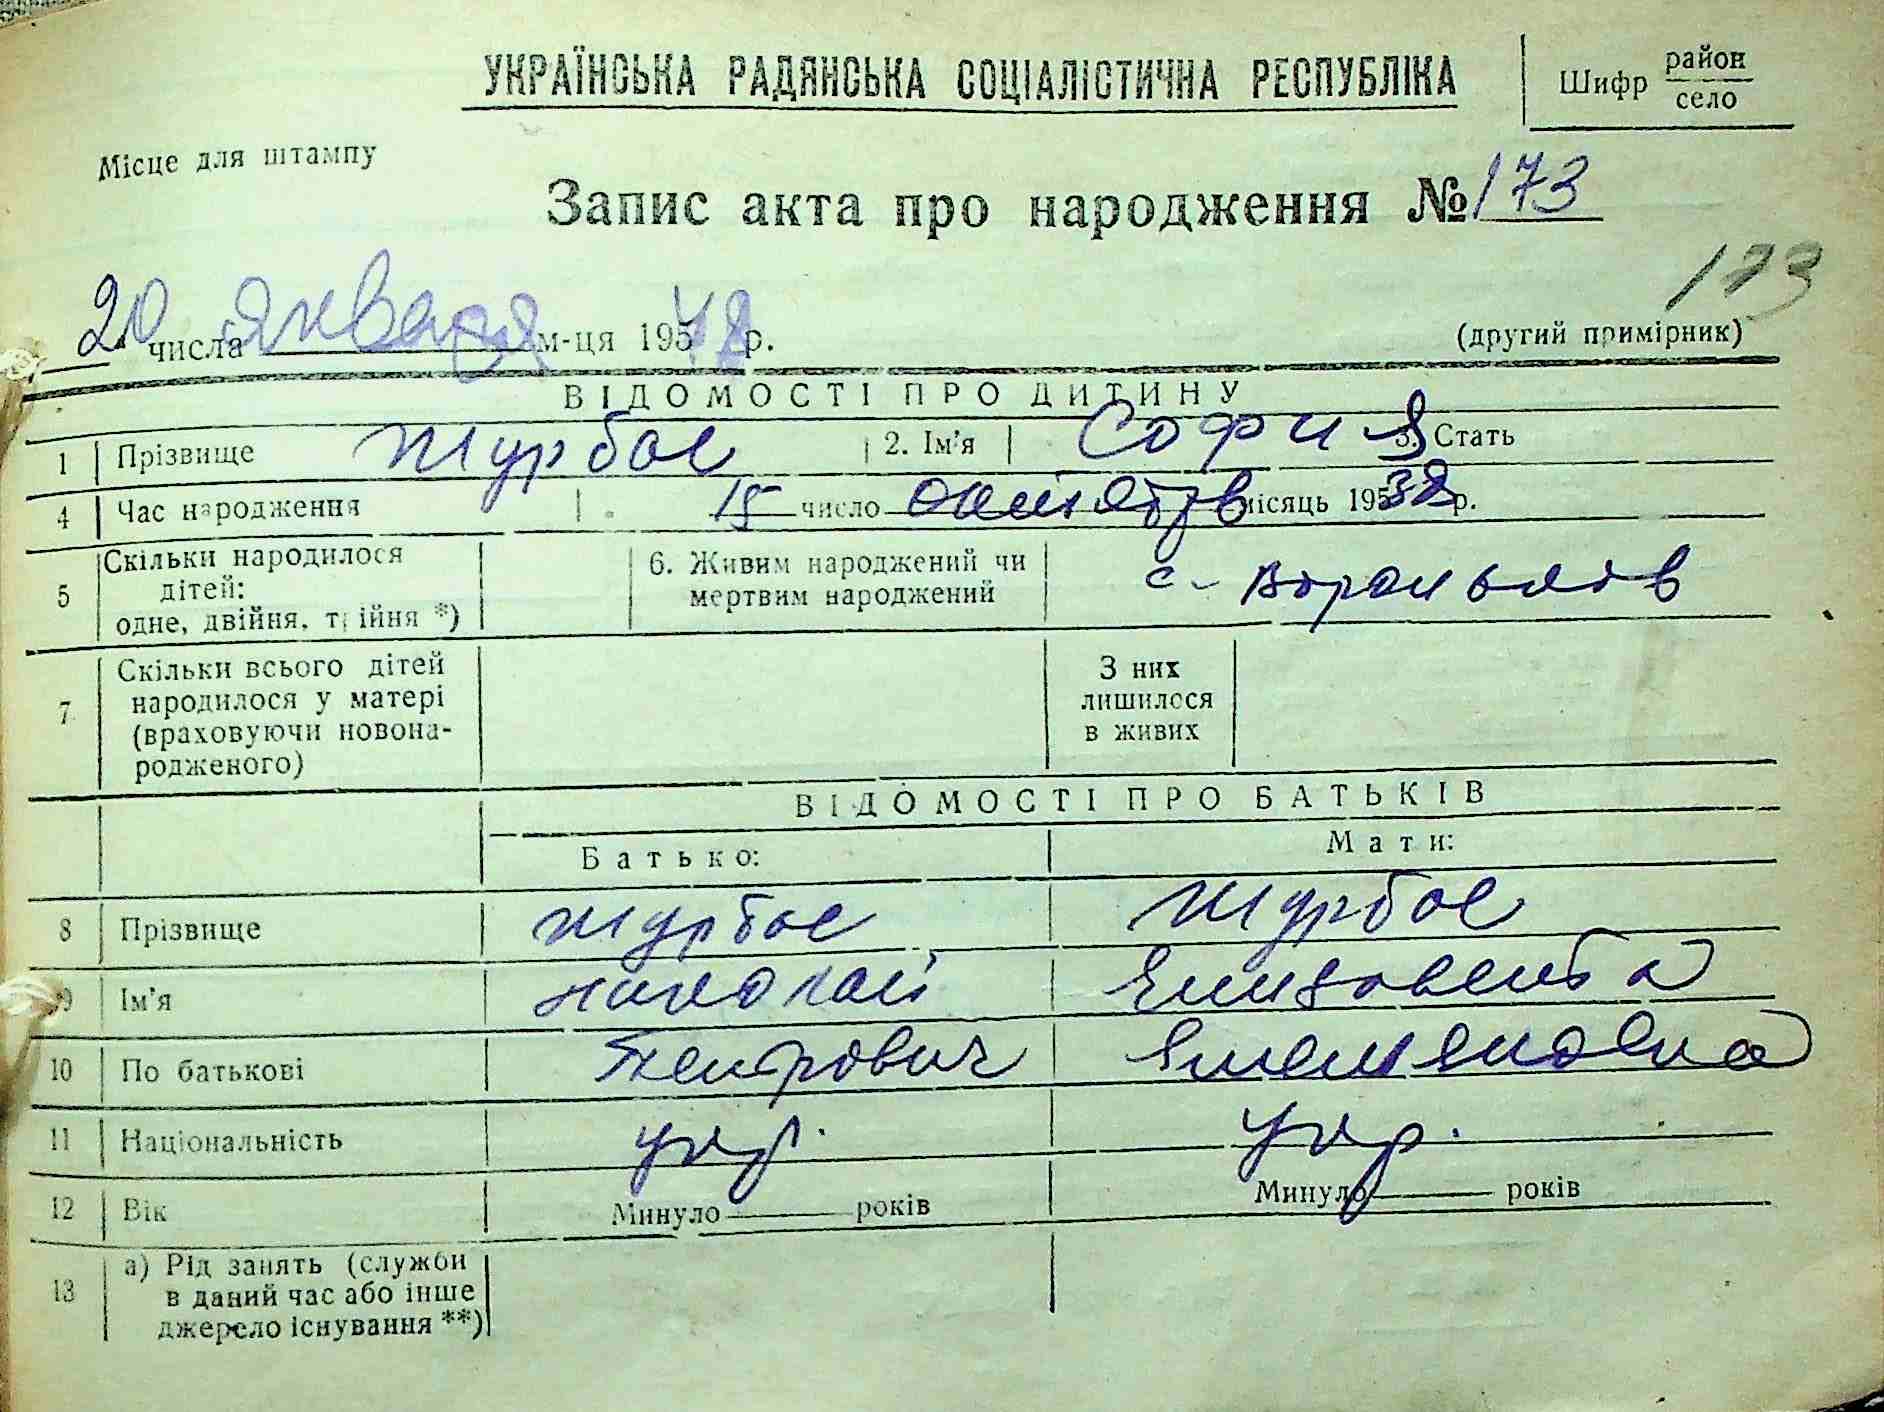 УКРАЇНСЬКА РАДЯНСЬКА СОЦІАЛІСТИЧНА РЕСПУБЛІКА
Шифр район
село
Місце для штампу
Запис акта про народження № 173
173
20 числа января м-ця 195 р.
(другий примірник)
ВІДОМОСТІ ПРО ДИТИНУ
1 Прізвище Журбас 2. Ім'я София 3. Стать
4 Час народження 15 число октября місяць 195 38 р.
5 Скільки народилося дітей: одне, двійня, трійня *) 6. Живим народжений чи мертвим народжений с. Вороньків
7 Скільки всього дітей народилося у матері (враховуючи новонародженого) З них лишилося в живих
ВІДОМОСТІ ПРО БАТЬКІВ
Батько: Мати:
8 Прізвище Журбас Журбас
9 Ім'я Николай Елизавета
10 По батькові Петрович Емельяновна
11 Національність укр. укр.
12 Вік Минуло років Минуло років
13 а) Рід занять (служби
в даний час або інше
джерело існування **)